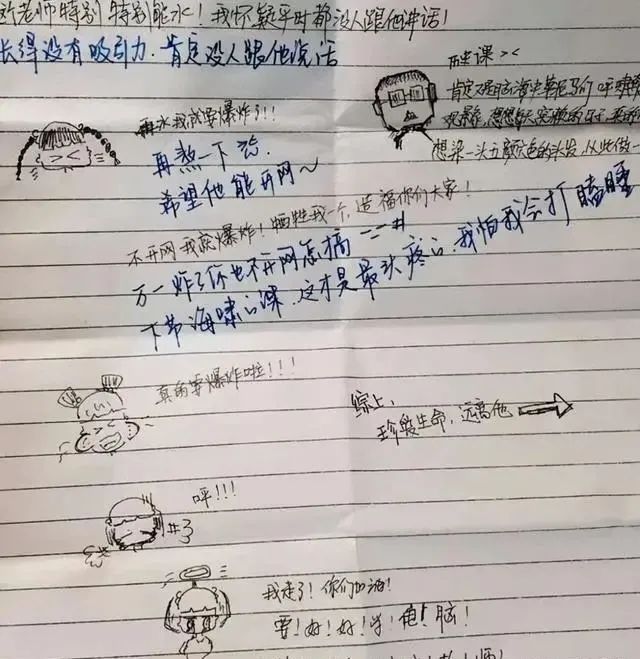 老师特别特别能水！我怀疑平时都没人跟他讲话！
长得没有吸引力，肯定没人跟他说话
历史课 ><
再水我就要爆炸了!!!
再熬一下么
希望他能开网~
想染一头五颜六色的头发，从此做一
不开网我就爆炸！牺牲我一个，造福你们大家！
万一炸了他也不开网怎搞 ==#
下节海啸的课，这才是最头疼的，我怕我会打瞌睡
真的要爆炸啦！！！
综上，
珍爱生命，远离他
呯!!!
#3
我走了！你们加油！
要！好！好！学！电！脑！